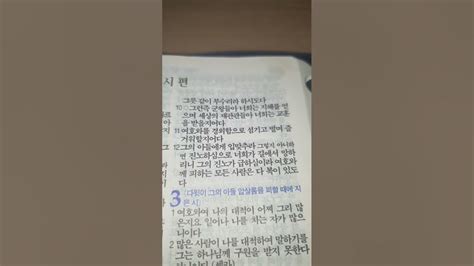 시 편
그릇 같이 부수리라 하시도다
10 그런즉 군왕들아 너희는 지혜를 얻
으며 세상의 재판관들아 너희는 교훈
을 받을지어다
11 여호와를 경외함으로 섬기고 떨며 즐
거워할지어다
12 그의 아들에게 입맞추라 그렇지 아니하
면 진노하심으로 너희가 길에서 망하
리니 그의 진노가 급하심이라 여호와
께 피하는 모든 사람은 다 복이 있도
다
3 (다윗이 그의 아들 압살롬을 피할 때에 지
은 시)
1 여호와여 나의 대적이 어찌 그리 많
은지요 일어나 나를 치는 자가 많으
니이다
2 많은 사람이 나를 대적하여 말하기를
그는 하나님께 구원을 받지 못한다
(셀라)